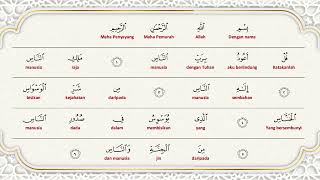 بِسْمِ اللَّهِ الرَّحْمَٰنِ الرَّحِيمِ
Dengan nama Allah Maha Pemurah Maha Penyayang
قُلْ أَعُوذُ بِرَبِّ النَّاسِ ١ مَلِكِ النَّاسِ
Katakanlah aku berlindung dengan Tuhan manusia raja manusia
٢ إِلَٰهِ النَّاسِ ٣ مِن شَرِّ الْوَسْوَاسِ
sembahan manusia daripada kejahatan bisikan
الْخَنَّاسِ ٤ الَّذِي يُوَسْوِسُ فِي صُدُورِ النَّاسِ
Yang bersembunyi yang membisikan dalam dada manusia
٥ مِنَ الْجِنَّةِ وَالنَّاسِ ٦
daripada jin dan manusia